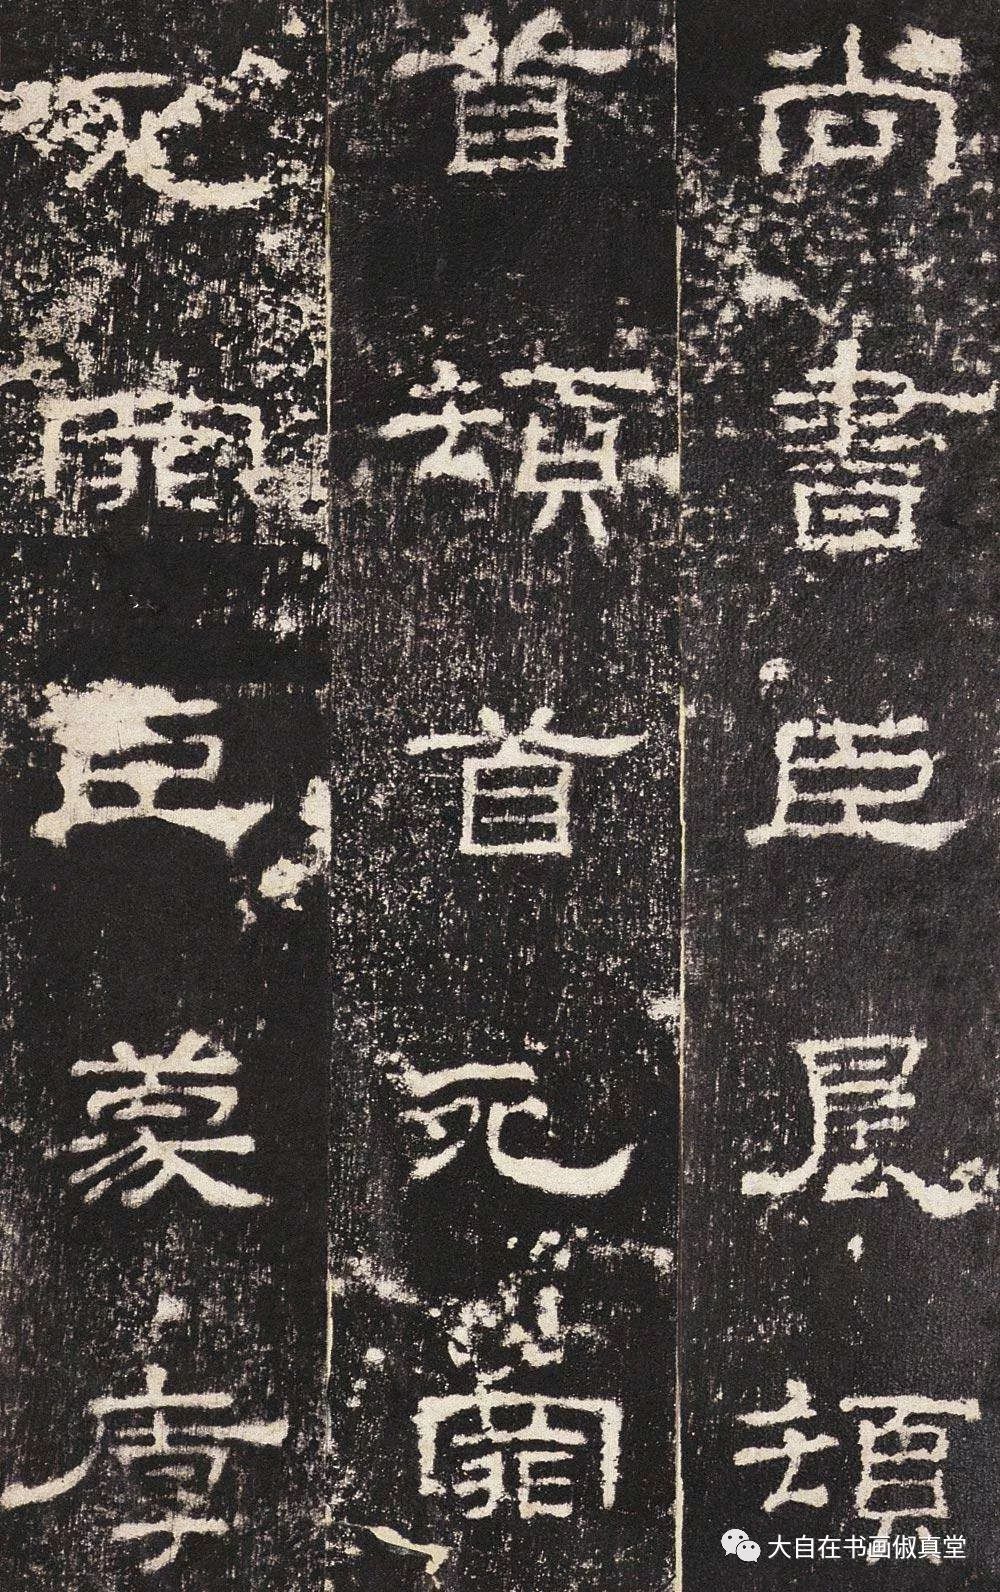 尚書臣晨頓
首頓首死罪
死罪臣蒙厚
大自在书画俶真堂